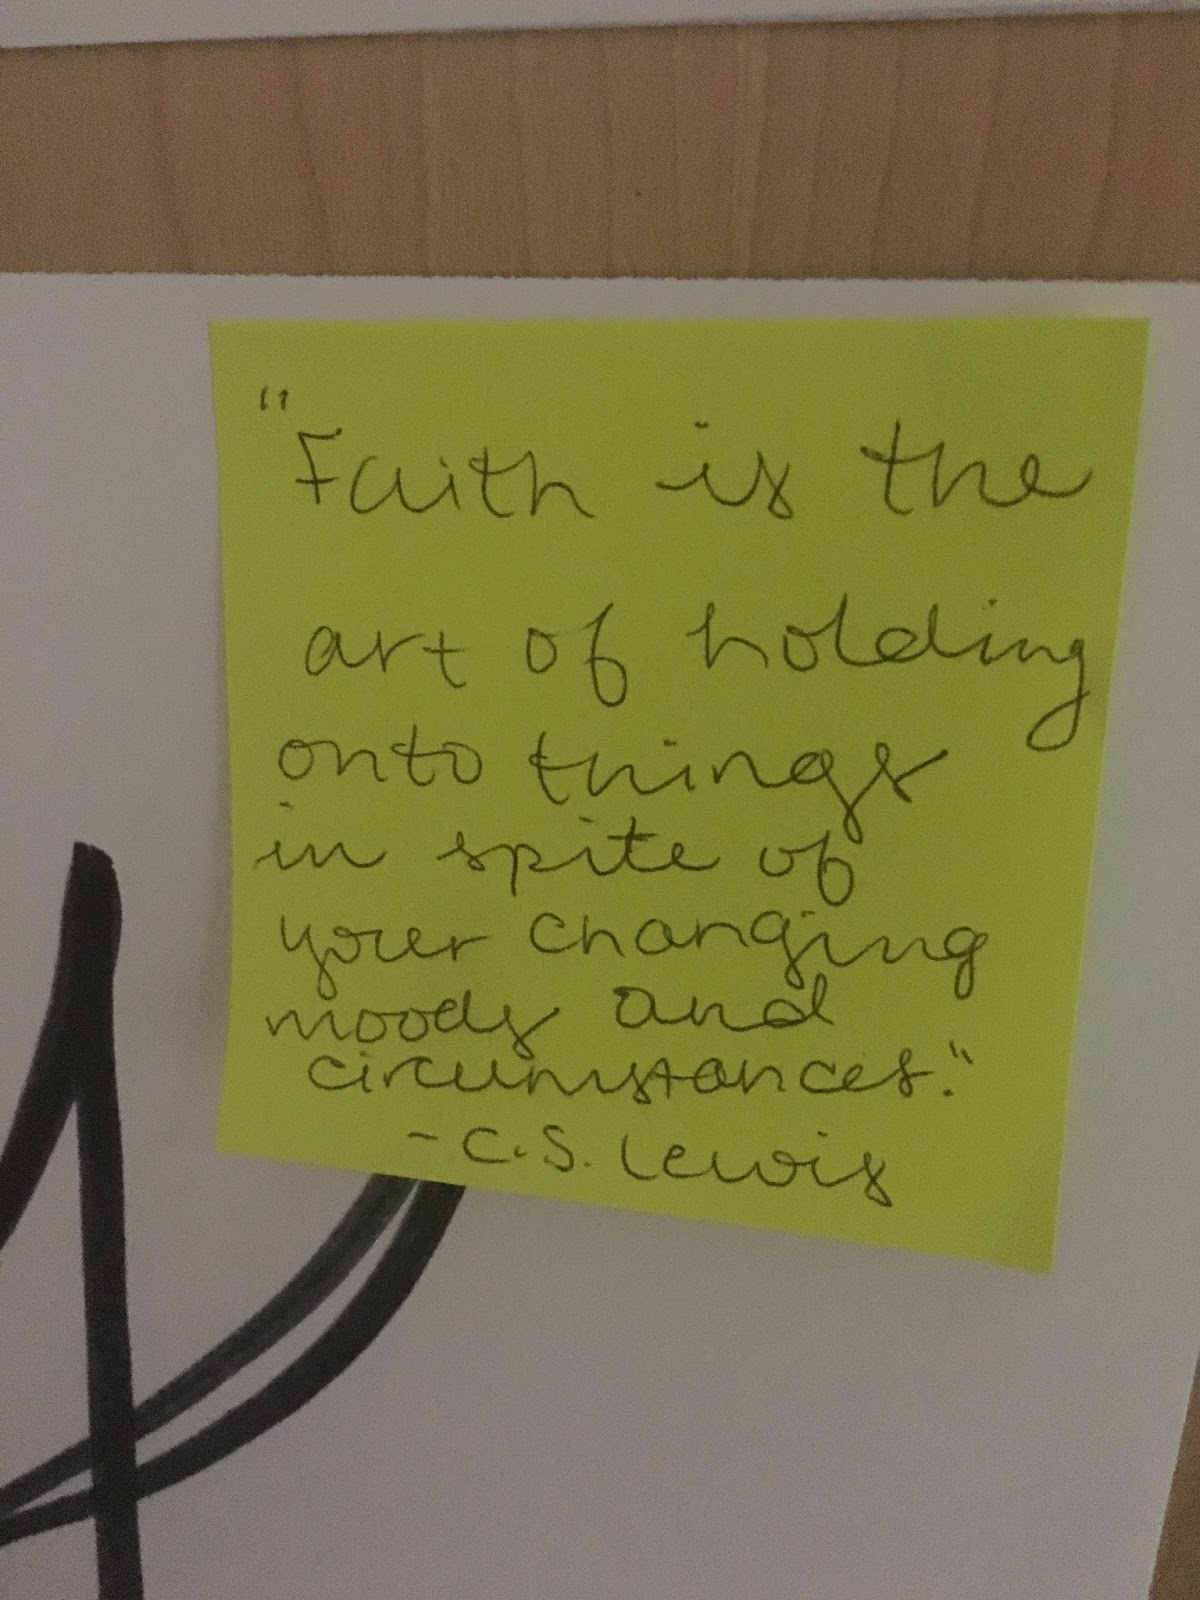 "Faith is the
art of holding
onto things
in spite of
your changing
moods and
circumstances."
- C.S. Lewis